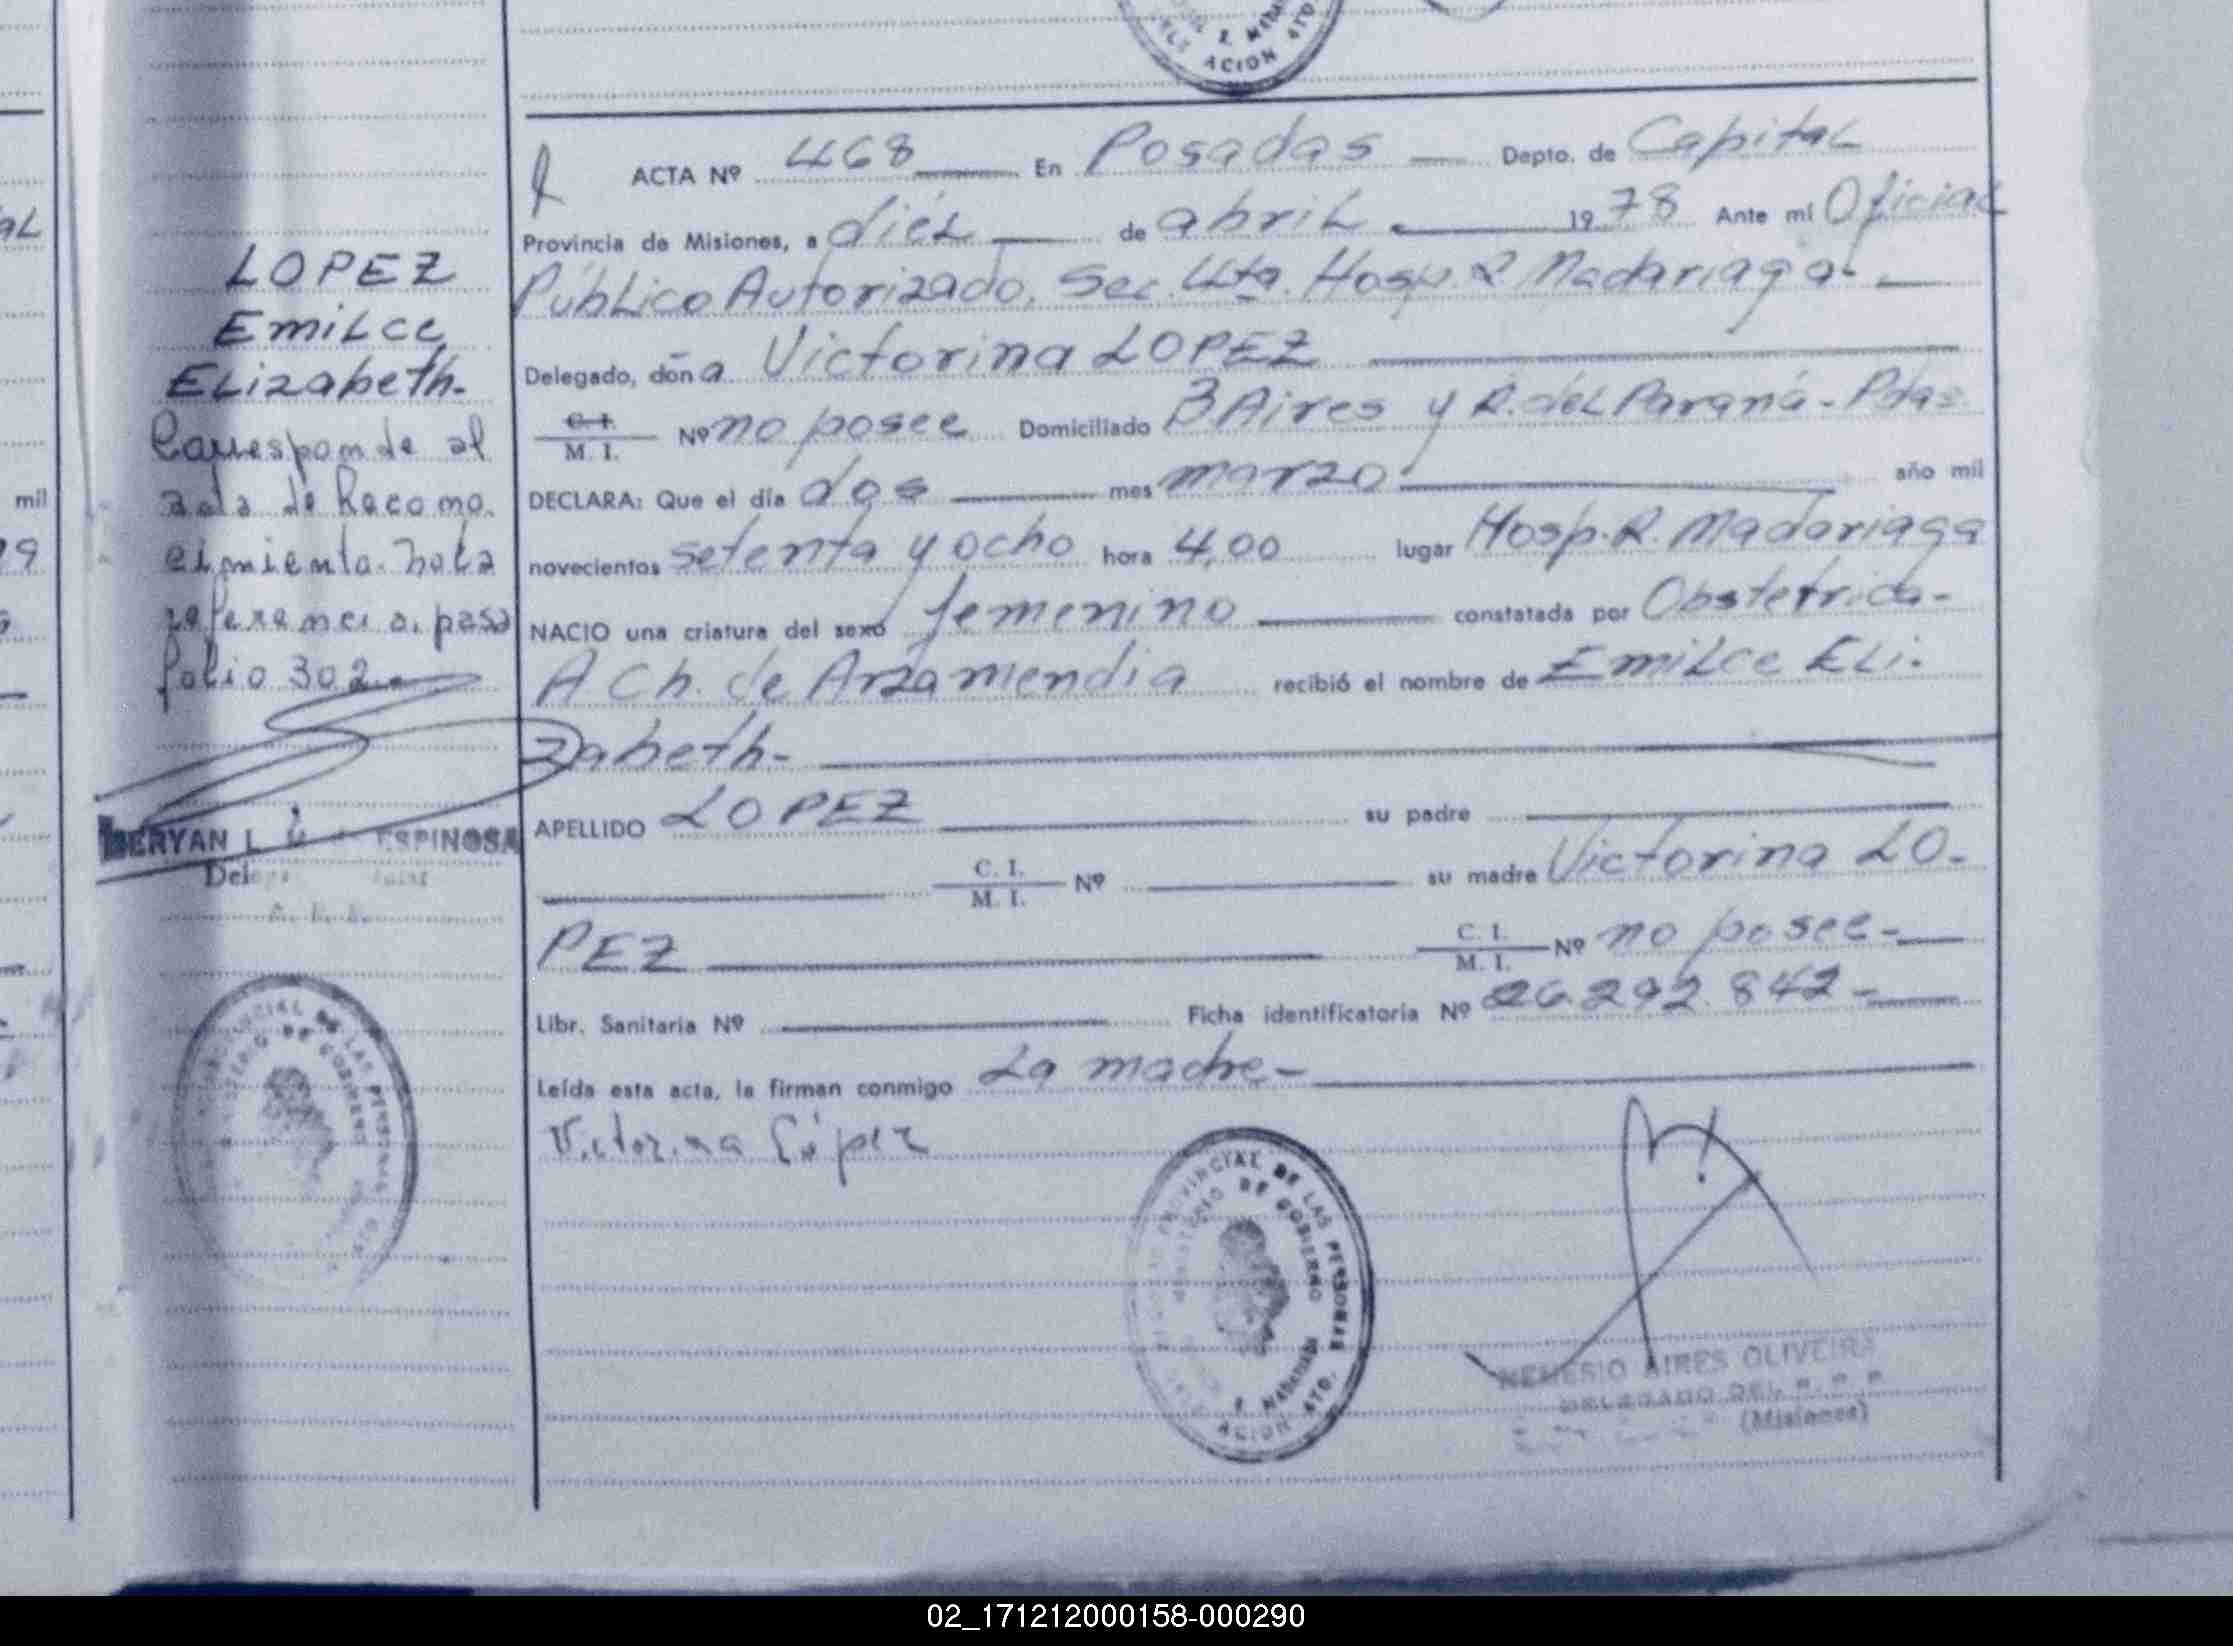 aL
mil
LOPEZ
Emilce
Elizabeth-
Corresponde al
acta de Recono.
cimiento. nota
referencia. pasa
folio 302.
ESPINOSA
ACION 4TO.
ACTA Nº 468 En Posadas Depto. de Capital
Provincia de Misiones, a diez de abril 1978 Ante mí Oficial
Público Autorizado, Sec. 4ta. Hosp. R Madariaga-
Delegado, doña Victorina LOPEZ
C. I.
M. I. Nº no posee Domiciliado B Aires y R. del Paraná - Pdas
DECLARA: Que el día dos mes marzo año mil
novecientos setenta y ocho hora 4,00 lugar Hosp. R. Madariaga
NACIO una criatura del sexo femenino constatada por Obstetrica-
A Ch. de Arzamendia recibió el nombre de Emilce Eli-
zabeth-
APELLIDO LOPEZ su padre
C. I.
M. I. Nº su madre Victorina LO-
PEZ C. I.
M. I. Nº no posee-
Libr. Sanitaria Nº Ficha identificatoria Nº 26.292.842-
Leída esta acta, la firman conmigo La madre-
Victorina López
PROVINCIAL DE LAS PERSONAS
MINISTERIO DE GOBIERNO
NEMESIO AIRES OLIVEIRA
DELEGADO DEL R. P. P.
(Misiones)
02_171212000158-000290